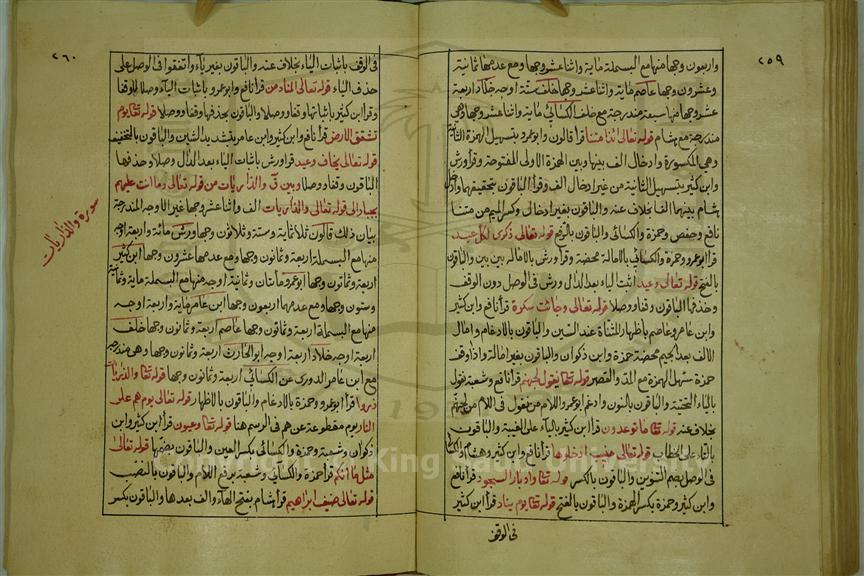 ٢٥٩
واربعون وجها منها مع البسملة ماية واثنا عشر وجها ومع عدمها ثمانية
وعشرون وجها عاصم ماية واثنا عشر وجها خلف ستة اوجه خلاد اربعة
عشر وجها منها سبعة مندرجة مع خلف الكسائي ماية واثنا عشر وجها وهي
مندرجة مع هشام قوله تعالى ائذا متنا قرأ قالون وابو عمرو بتسهيل الهمزة الثانية
وهي المكسورة وادخال الف بينها وبين الهمزة الاولى المفتوحة وقرأ ورش
وابن كثير بتسهيل الثانية من غير ادخال الف وقرأ الباقون بتحقيقهما وادخل
هشام بينهما الفا بخلاف عنه والباقون بغير ادخال وكسر الميم من متنا
نافع وحفص وحمزة والكسائي والباقون بالرفع قوله تعالى ذكرى لكل عبد
قرأ ابو عمرو وحمزة والكسائي بالامالة محضة وقرأ ورش بالامالة بين بين والباقون
بالفتح قوله تعالى وعيد اثبت الياء بعد الدال ورش في الوصل دون الوقف
وحذفها الباقون وقفا ووصلا قوله تعالى وجاءت سكرة قرأ نافع وابن كثير
وابن عامر وعاصم باظهار المثناة عند السين والباقون بالادغام وامال
الالف بعد الجيم محضة حمزة وابن ذكوان والباقون بغير امالة واذا وقف
حمزة سهل الهمزة مع المد والقصر قوله تعالى يقول لجهنم قرأ نافع وشعبة يقول
بالياء التحتية والباقون بالنون وادغم ابو عمرو اللام من نقول في اللام من لجهنم
بخلاف عنه قوله تعالى ما توعدون قرأ ابن كثير بالياء على الغيبة والباقون
بالتاء على الخطاب قوله تعالى منيب ادخلوها قرأ نافع وابن كثير وهشام والكسائي
في الوصل بضم التنوين والباقون بالكسر قوله تعالى وادبار السجود قرأ نافع
وابن كثير وحمزة بكسر الهمزة والباقون بالفتح قوله تعالى يوم يناد قرأ ابن كثير
في الوقف
٢٦٠
في الوقف باثبات الياء بخلاف عنه والباقون بغير ياء واتفقوا في الوصل على
حذف الياء قوله تعالى المناد من قرأ نافع وابو عمرو باثبات الياء وصلا لا وقفا
وقرأ ابن كثير باثباتها وقفا ووصلا والباقون بحذفها وقفا ووصلا قوله تعالى يوم
تشقق الارض قرأ نافع وابن كثير وابن عامر بتشديد الشين والباقون بالتخفيف
قوله تعالى يخاف وعيد قرأ ورش باثبات الياء بعد الدال وصلا وحذفها
الباقون وقفا ووصلا وبين ق والذاريات من قوله تعالى وما انت عليهم
بجبار الى قوله تعالى والذاريات الف واثنا عشر وجها غير الاوجه المندرجة
بيان ذلك قالون ثلثماية وستة وثلاثون وجها ورش مائة واربعة اوجه
منها مع البسملة اربعة وثمانون وجها ومع عدمها عشرون وجها ابن كثير
اربعة وثمانون وجها ابو عمرو مائتان وثمانية اوجه منها مع البسملة ماية وثمانية
وستون وجها ومع عدمها اربعون وجها ابن عامر ماية واربعة اوجه
منها مع البسملة اربعة وثمانون وجها عاصم اربعة وثمانون وجها خلف
اربعة اوجه خلاد اربعة اوجه ابو الحارث اربعة وثمانون وجها وهي مندرجة
مع ابن عامر الدوري عن الكسائي اربعة وثمانون وجها قوله تعالى والذاريات
ذروا قرأ ابو عمرو وحمزة بالادغام والباقون بالاظهار قوله تعالى يوم هم على
النار يوم مقطوعة عن هم في الرسم هنا قوله تعالى وعيون قرأ ابن كثير وابن
ذكوان وشعبة وحمزة والكسائي بكسر العين والباقون بضمها قوله تعالى
مثل ما انكم قرأ حمزة والكسائي وشعبة برفع اللام والباقون بالنصب
قوله تعالى ضيف ابراهيم قرأ هشام بفتح الهاء والف بعدها والباقون بكسر
سورة والذاريات
King Saud University